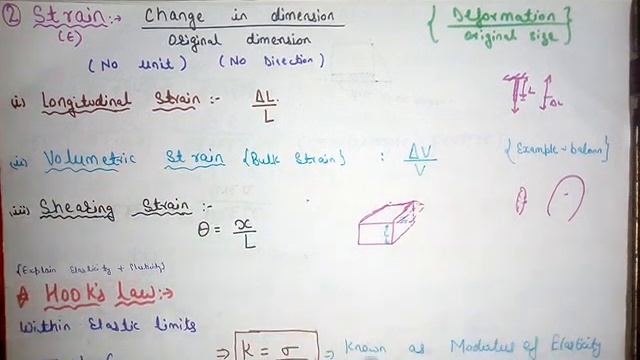 ② Strain:- Change in dimension / Original dimension { Deformation / original size }
(E)
(No unit) (No Direction)
(i) Longitudinal Strain:- ΔL / L
L ΔL
(ii) Volumetric Strain {Bulk Strain} : ΔV / V {Example - baloon}
(iii) Shearing Strain:-
θ = x / L
{Explain Elasticity + Plasticity}
Hook's Law:→
Within Elastic limits
⇒ K = σ ⇒ Known as Modulus of Elasticity